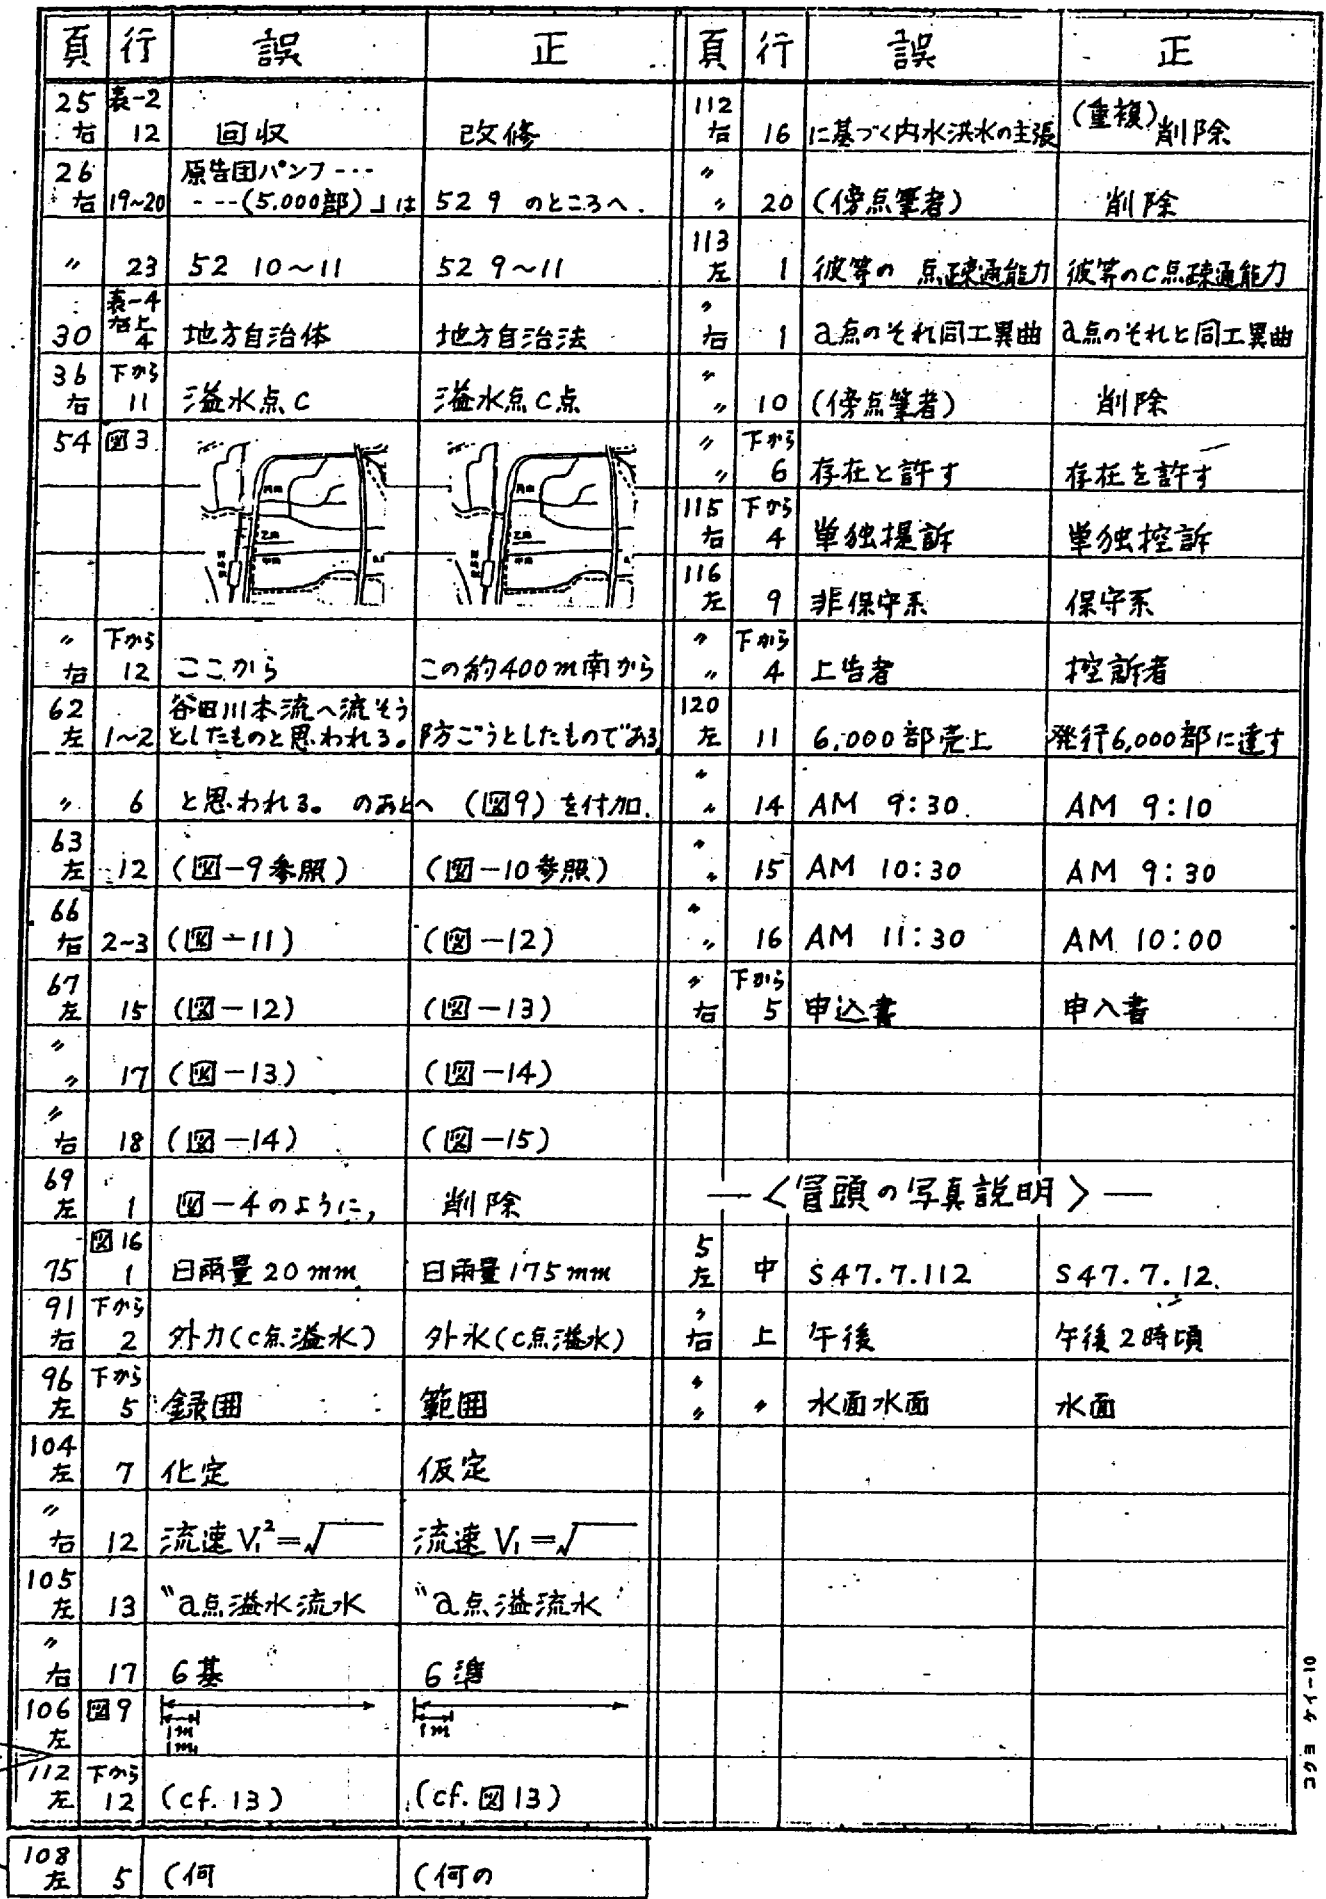 頁 行 誤 正
25右 表-2 12 回収 改修
26右 19~20 原告団パンフ---
---(5.000部)」は 52 9 のところへ.
〃 23 52 10~11 52 9~11
30 表-4 右上4 地方自治体 地方自治法
36右 下から11 溢水点C 溢水点C点
54 図3
〃右 下から12 ここから この約400m南から
62左 1~2 谷田川本流へ流そう
としたものと思われる。 防ごうとしたものである
〃 6 と思われる。 のあとへ (図9)を付加.
63左 12 (図-9参照) (図-10参照)
66右 2~3 (図-11) (図-12)
67左 15 (図-12) (図-13)
〃〃 17 (図-13) (図-14)
〃右 18 (図-14) (図-15)
69左 1 図-4のように, 削除
75 図16 1 日雨量20mm 日雨量175mm
91右 下から2 外力(C点溢水) 外水(C点溢水)
96左 下から5 録囲 範囲
104左 7 化定 仮定
〃右 12 流速V₁²=√ 流速V₁=√
105左 13 "a点溢水流水 "a点溢流水
〃右 17 6基 6準
106左 図9 1m 1m 1m
112左 下から12 (cf.13) (cf.図13)
108左 5 (何 (何の
頁 行 誤 正
112右 16 に基づく内水洪水の主張 (重複)削除
〃〃 20 (傍点筆者) 削除
113左 1 彼等の 点疎通能力 彼等のC点疎通能力
〃右 1 a点のそれ同工異曲 a点のそれと同工異曲
〃〃 10 (傍点筆者) 削除
〃〃 下から6 存在と許す 存在を許す
115右 下から4 単独提訴 単独控訴
116左 9 非保守系 保守系
〃〃 下から4 上告者 控訴者
120左 11 6,000部売上 発行6,000部に達す
〃〃 14 AM 9:30. AM 9:10
〃〃 15 AM 10:30 AM 9:30
〃〃 16 AM 11:30 AM 10:00
〃右 下から5 申込書 申入書
―〈冒頭の写真説明〉―
5左 中 S47.7.112 S47.7.12.
〃右 上 午後 午後2時頃
〃〃 〃 水面水面 水面
コクヨ ケイ-10